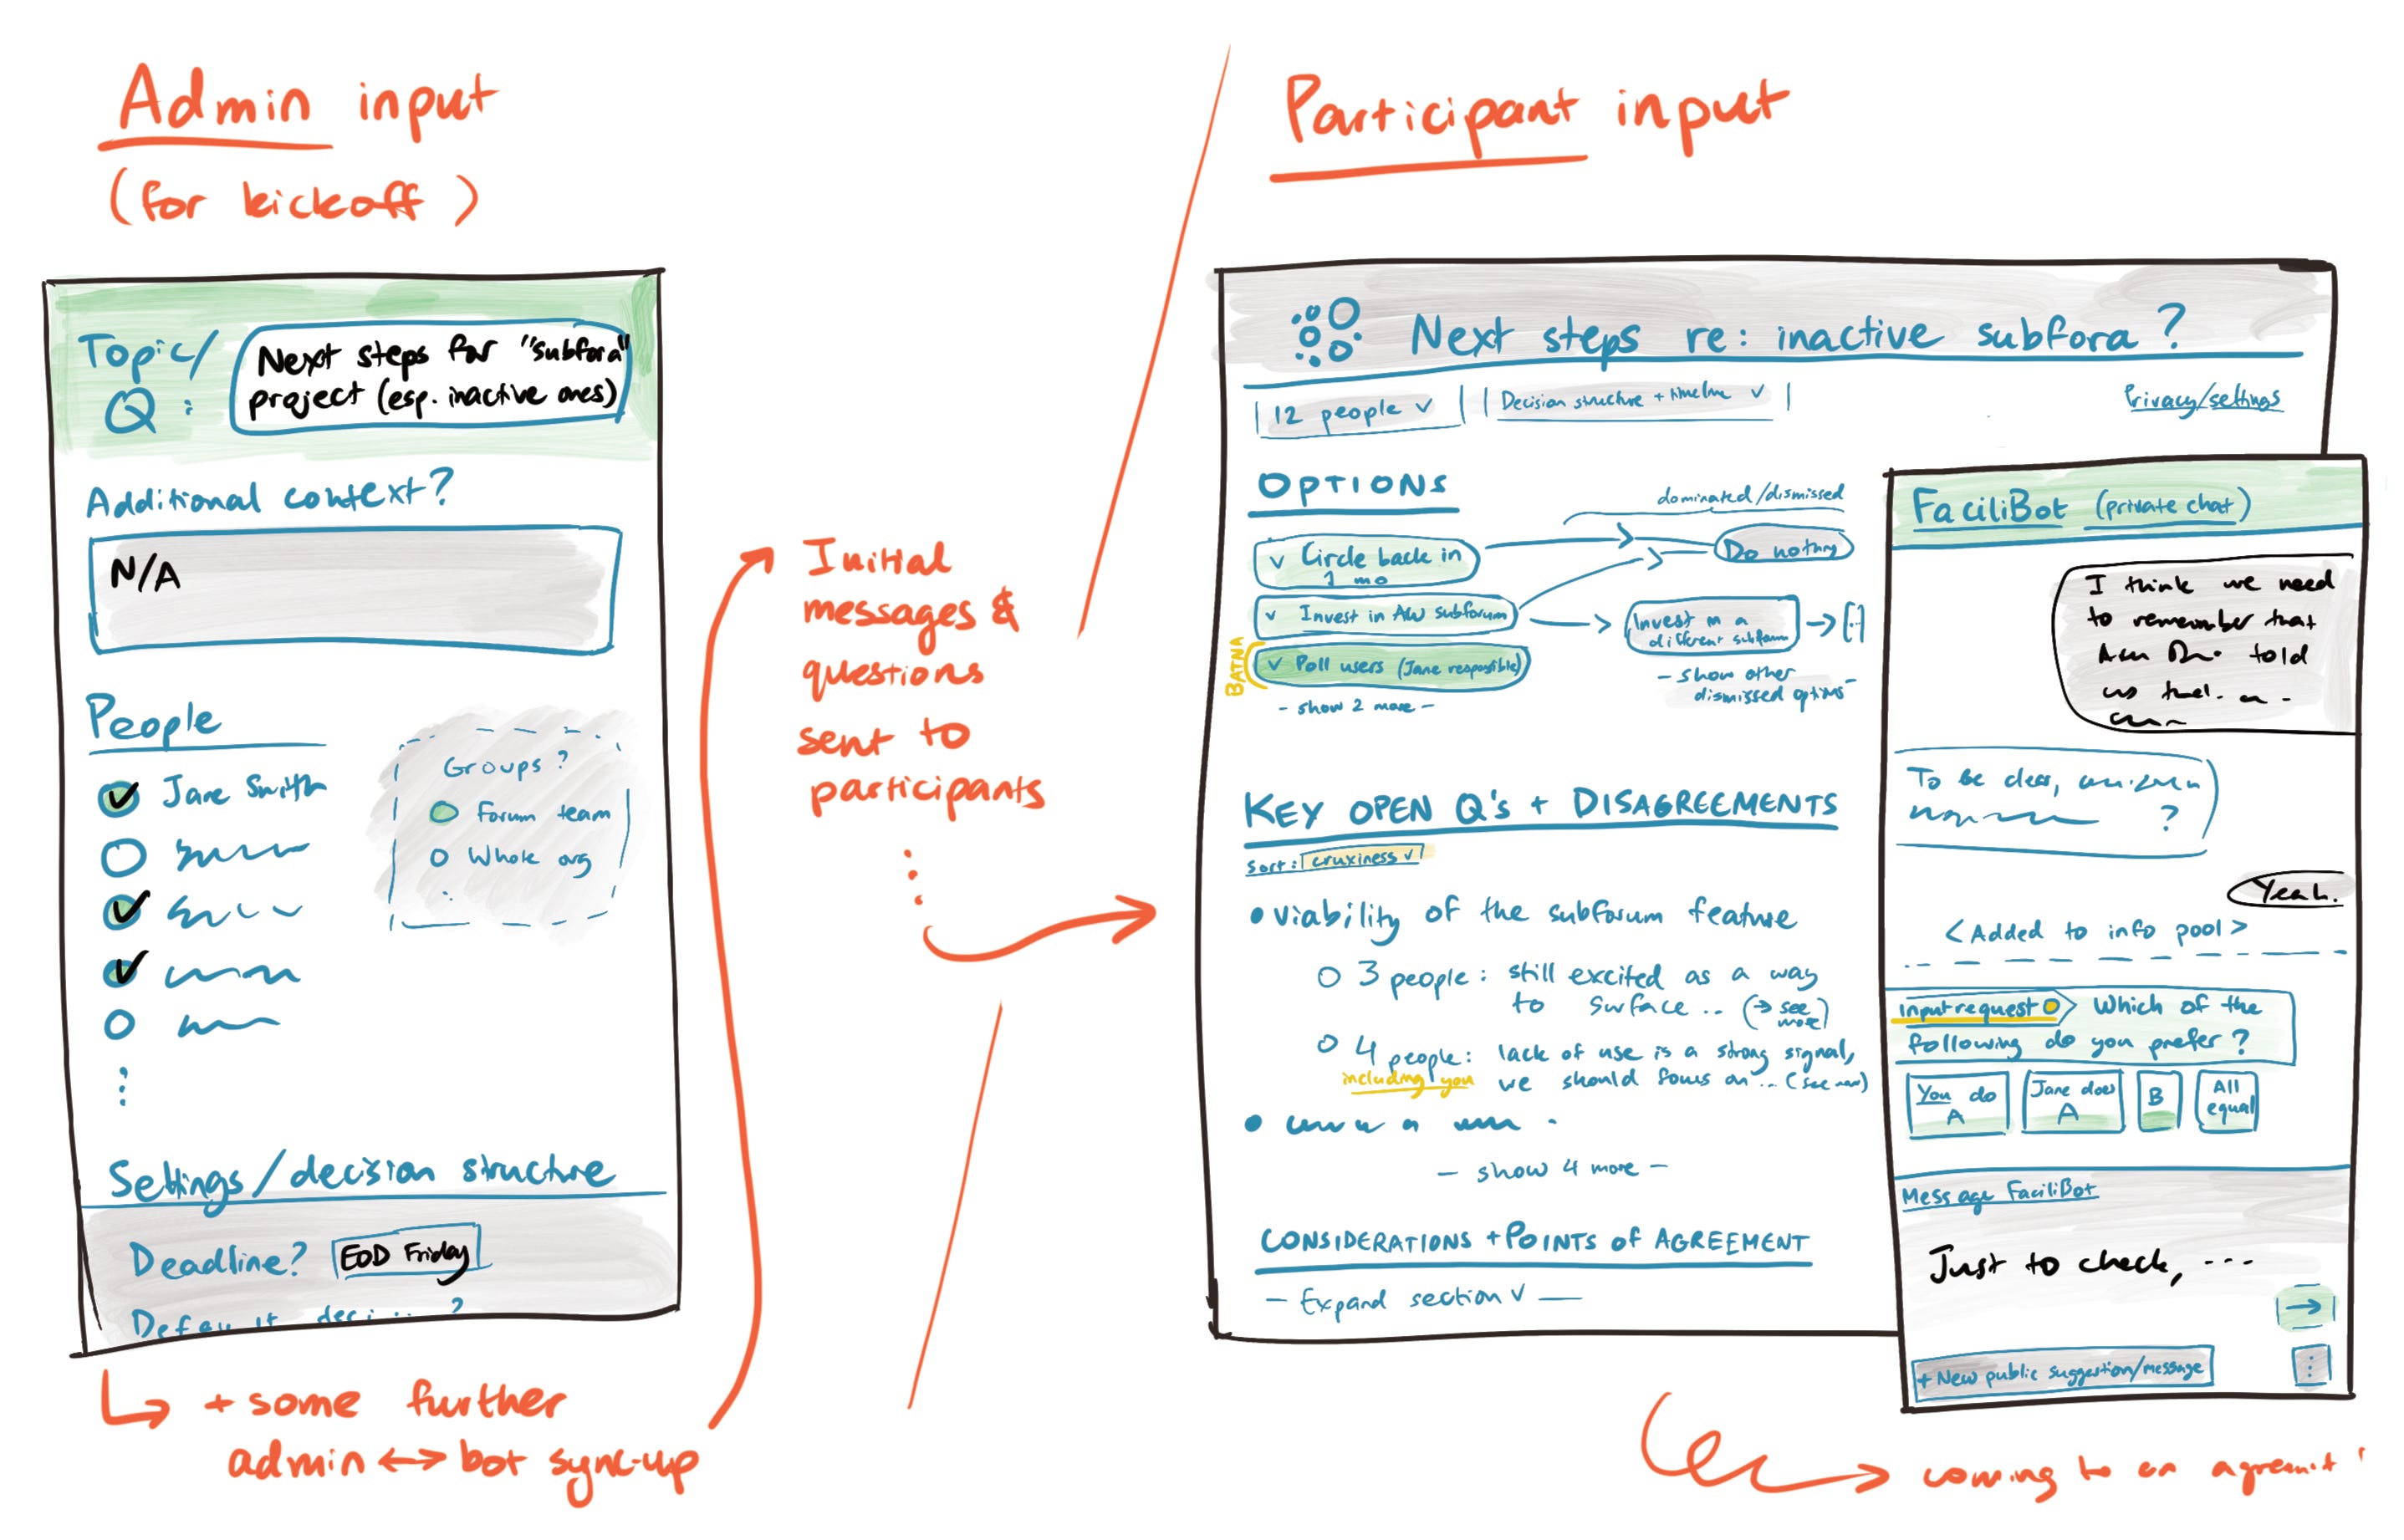 Admin input
(for kickoff)
Topic/
Q:
Next steps for "subfora"
project (esp. inactive ones)
Additional context?
N/A
People
Jane Smith
Groups?
Forum team
Whole org
Settings/decision structure
Deadline? EOD Friday
↳ + some further
admin ↔ bot sync-up
Initial
messages &
questions
sent to
participants
Participant input
Next steps re: inactive subfora?
12 people ∨
Decision structure + timeline ∨
Privacy/settings
OPTIONS
dominated/dismissed
✓ Circle back in
1 mo
Do nothing
✓ Invest in AW subforum
Invest in a
different subforum
→ [:]
BATNA
✓ Poll users (Jane responsible)
- show 2 more -
- show other
dismissed options -
KEY OPEN Q's + DISAGREEMENTS
Sort: cruxiness ∨
• viability of the subforum feature
○ 3 people: still excited as a way
to surface .. (→ see
more)
○ 4 people: lack of use is a strong signal,
including you
we should focus on ... (see more)
- show 4 more -
CONSIDERATIONS + POINTS of AGREEMENT
- Expand section ∨ -
FaciliBot (private chat)
I think we need
to remember that
told
us that
To be clear,
?
Yeah.
<Added to info pool>
input request
Which of the
following do you prefer?
You do
A
Jane does
A
B
All
equal
Message FaciliBot
Just to check, ---
→
+ New public suggestion/message
⋮
→ coming to an agreement